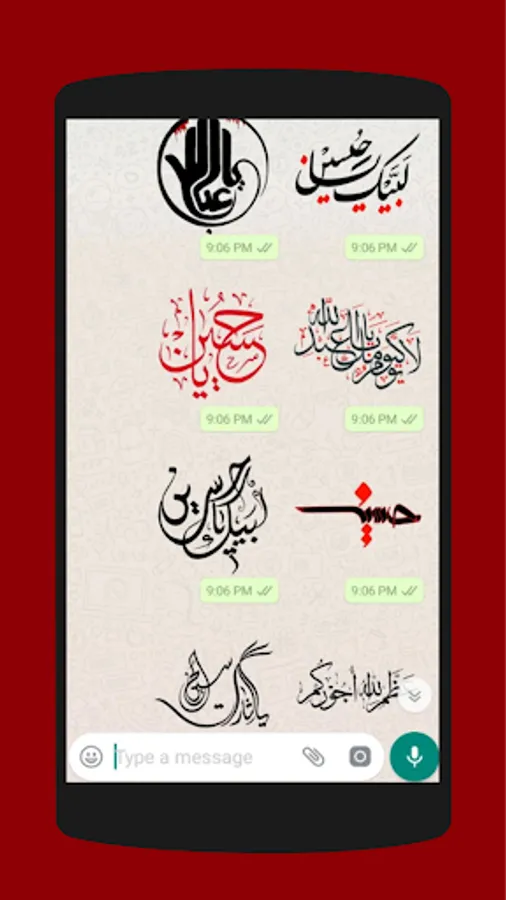 يا أبا عبدالله
لبيك يا حسين
9:06 PM
9:06 PM
يا حسين
لا يوم كيومك يا أبا عبدالله
9:06 PM
9:06 PM
لبيك يا حسين
حسين
9:06 PM
9:06 PM
عظم الله أجوركم
Type a message